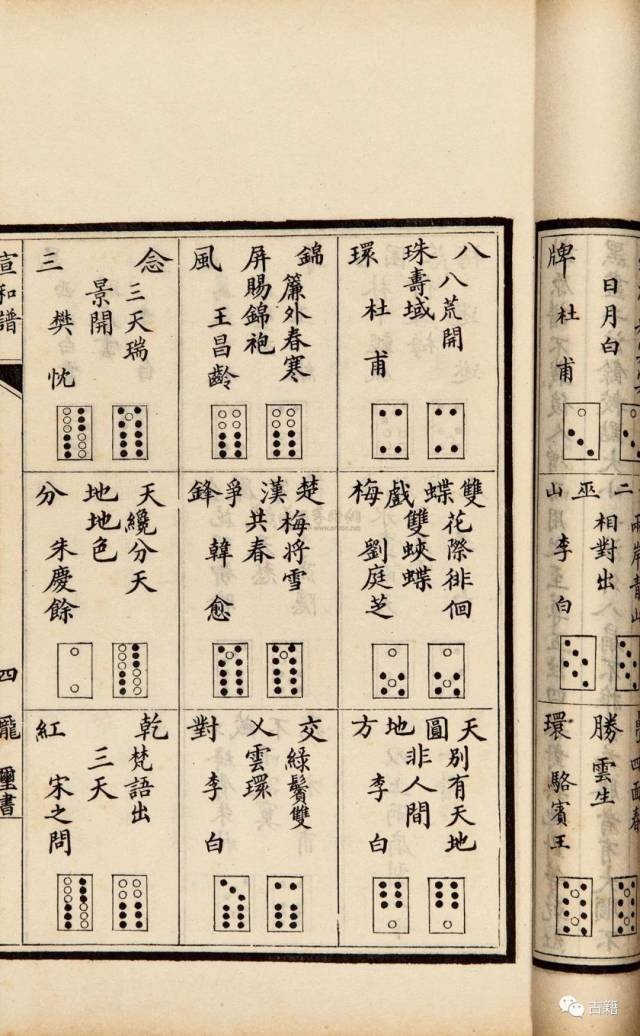 日月白
牌 杜甫
相對出
巫
山 李白
勝 雲生
環 駱賓王
八 八荒開
珠 壽域
環 杜甫
錦 簾外春寒
屏 賜錦袍
風 王昌齡
念 三天瑞
景開
三 樊忱
雙 花際徘徊
蝶 雙蛺蝶
戲
梅 劉庭芝
楚 梅將雪
漢 共春
爭
鋒 韓愈
天 纔分天
地 地色
分 朱慶餘
天 別有天地
圓 非人間
地
方 李白
交 綠鬢雙
乂 雲環
對 李白
乾 梵語出
三天
紅 宋之問
宣和譜
四
古籍